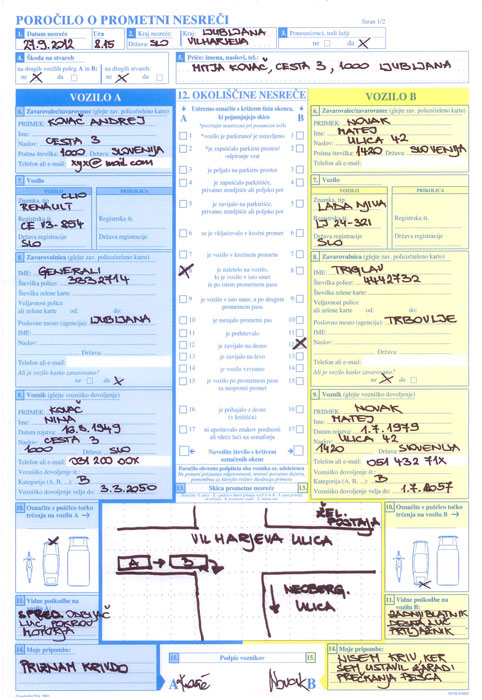 POROČILO O PROMETNI NESREČI
Stran 1/2
1. Datum nesreče Ura
27.9.2012 8.15
2. Kraj nesreče
Država: SLO
Kraj: LJUBLJANA
VILHARJEVA
3. Ponesrečenci, tudi lažji
ne da X
4. Škoda na stvareh
na drugih vozilih poleg A in B: na drugih stvareh:
ne X da ne X da
5. Priče: imena, naslovi, tel.:
MITJA KOVAČ, CESTA 3, 1000 LJUBLJANA
VOZILO A
6. Zavarovalec/zavarovanec (glej zav. polico/zeleno karto)
PRIIMEK: KOVAČ ANDREJ
Ime:
Naslov: CESTA 3
Poštna številka: 1000 Država: SLOVENIJA
Telefon ali e-mail: xyx@mail.com
7. Vozilo
VOZILO PRIKOLICA
Znamka, tip CLIO
RENAULT
Registrska št. Registrska št.
CE V3-854
Država registracije Država registracije
SLO
8. Zavarovalnica (glejte zav. polico/zeleno karto)
IME: GENERALI
Številka police: 3832714
Številka zelene karte:
Veljavnost police
ali zelene karte od: do:
Poslovno mesto (agencija): LJUBLJANA
IME:
Naslov:
Država:
Telefon ali e-mail:
Ali je vozilo kasko zavarovano?
ne da X
9. Voznik (glejte vozniško dovoljenje)
PRIIMEK: KOVAČ
Ime: NINA
Datum rojstva: 10.5.1949
Naslov: CESTA 3
1000 SLO
Telefon ali e-mail: 031 200 00X
Vozniško dovoljenje št.:
Kategorija (A, B, ...): B
Vozniško dovoljenje velja do: 3.3.2050
12. OKOLIŠČINE NESREČE
A B
Ustrezno označite s križcem tista okenca, ki pojasnjujejo skico
1 1
2 2
odpiranje vrat
3 je peljalo na parkirni prostor 3
4 je zapuščalo parkirišče, privatno zemljišče ali poljsko pot 4
5 je zavijalo na parkirišče, privatno zemljišče ali poljsko pot 5
6 se je vključevalo v krožni promet 6
7 je vozilo v krožnem prometu 7
X je naletelo na vozilo, ki je vozilo v isto smer in po istem prometnem pasu 8
9 je vozilo v isto smer, a po drugem prometnem pasu 9
10 je menjalo prometni pas 10
11 je prehitevalo 11
12 je zavijalo na desno X
13 je zavijalo na levo 13
14 je vozilo vzvratno 14
15 je vozilo po prometnem pasu za nasprotni promet 15
16 je prihajalo z desne (v križišču) 16
17 ni upoštevalo znakov prednosti ali rdeče luči na semaforju 17
Navedite število s križcem označenih okenc
Poročilo obvezno podpišeta oba voznika oz. udeleženca
VOZILO B
6. Zavarovalec/zavarovanec (glej zav. polico/zeleno karto)
PRIIMEK: NOVAK
Ime: MATEJ
Naslov: ULICA 42
Poštna številka: 1420 Država: SLOVENIJA
Telefon ali e-mail:
7. Vozilo
VOZILO PRIKOLICA
Znamka, tip
LADA NJIVA
Registrska št. Registrska št.
LJ 24-321
Država registracije Država registracije
SLO
8. Zavarovalnica (glejte zav. polico/zeleno karto)
IME: TRIGLAV
Številka police: 4442732
Številka zelene karte:
Veljavnost police
ali zelene karte od: do:
Poslovno mesto (agencija):
TRBOVLJE
IME:
Naslov:
Država:
Telefon ali e-mail:
Ali je vozilo kasko zavarovano?
ne X da
9. Voznik (glejte vozniško dovoljenje)
PRIIMEK: NOVAK
Ime: MATEJ
Datum rojstva: 1.7.1979
Naslov: ULICA 42
1420 SLOVENIJA
Telefon ali e-mail: 051 432 11X
Vozniško dovoljenje št.:
Kategorija (A, B, ...): B
Vozniško dovoljenje velja do: 1.7.2057
10. Označite s puščico točko trčenja na vozilu A
13. Skica prometne nesreče 13.
ŽEL. POSTAJA
VILHARJEVA ULICA
A B
NEOBERG.
ULICA
10. Označite s puščico točko trčenja na vozilu B
11. Vidne poškodbe na vozilu A:
SPRED. ODBIJAČ
LUČ, POKROV
MOTORJA
11. Vidne poškodbe na vozilu B:
ZADNJI BLATNIK
DESNA LUČ
PRTLJAŽNIK
14. Moje pripombe:
PRIZNAM KRIVDO
15. Podpis voznikov 15.
A Kovač Novak B
14. Moje pripombe:
NISEM KRIV, KER
SEM USTAVIL ZARADI
PREČKANJA PEŠCA